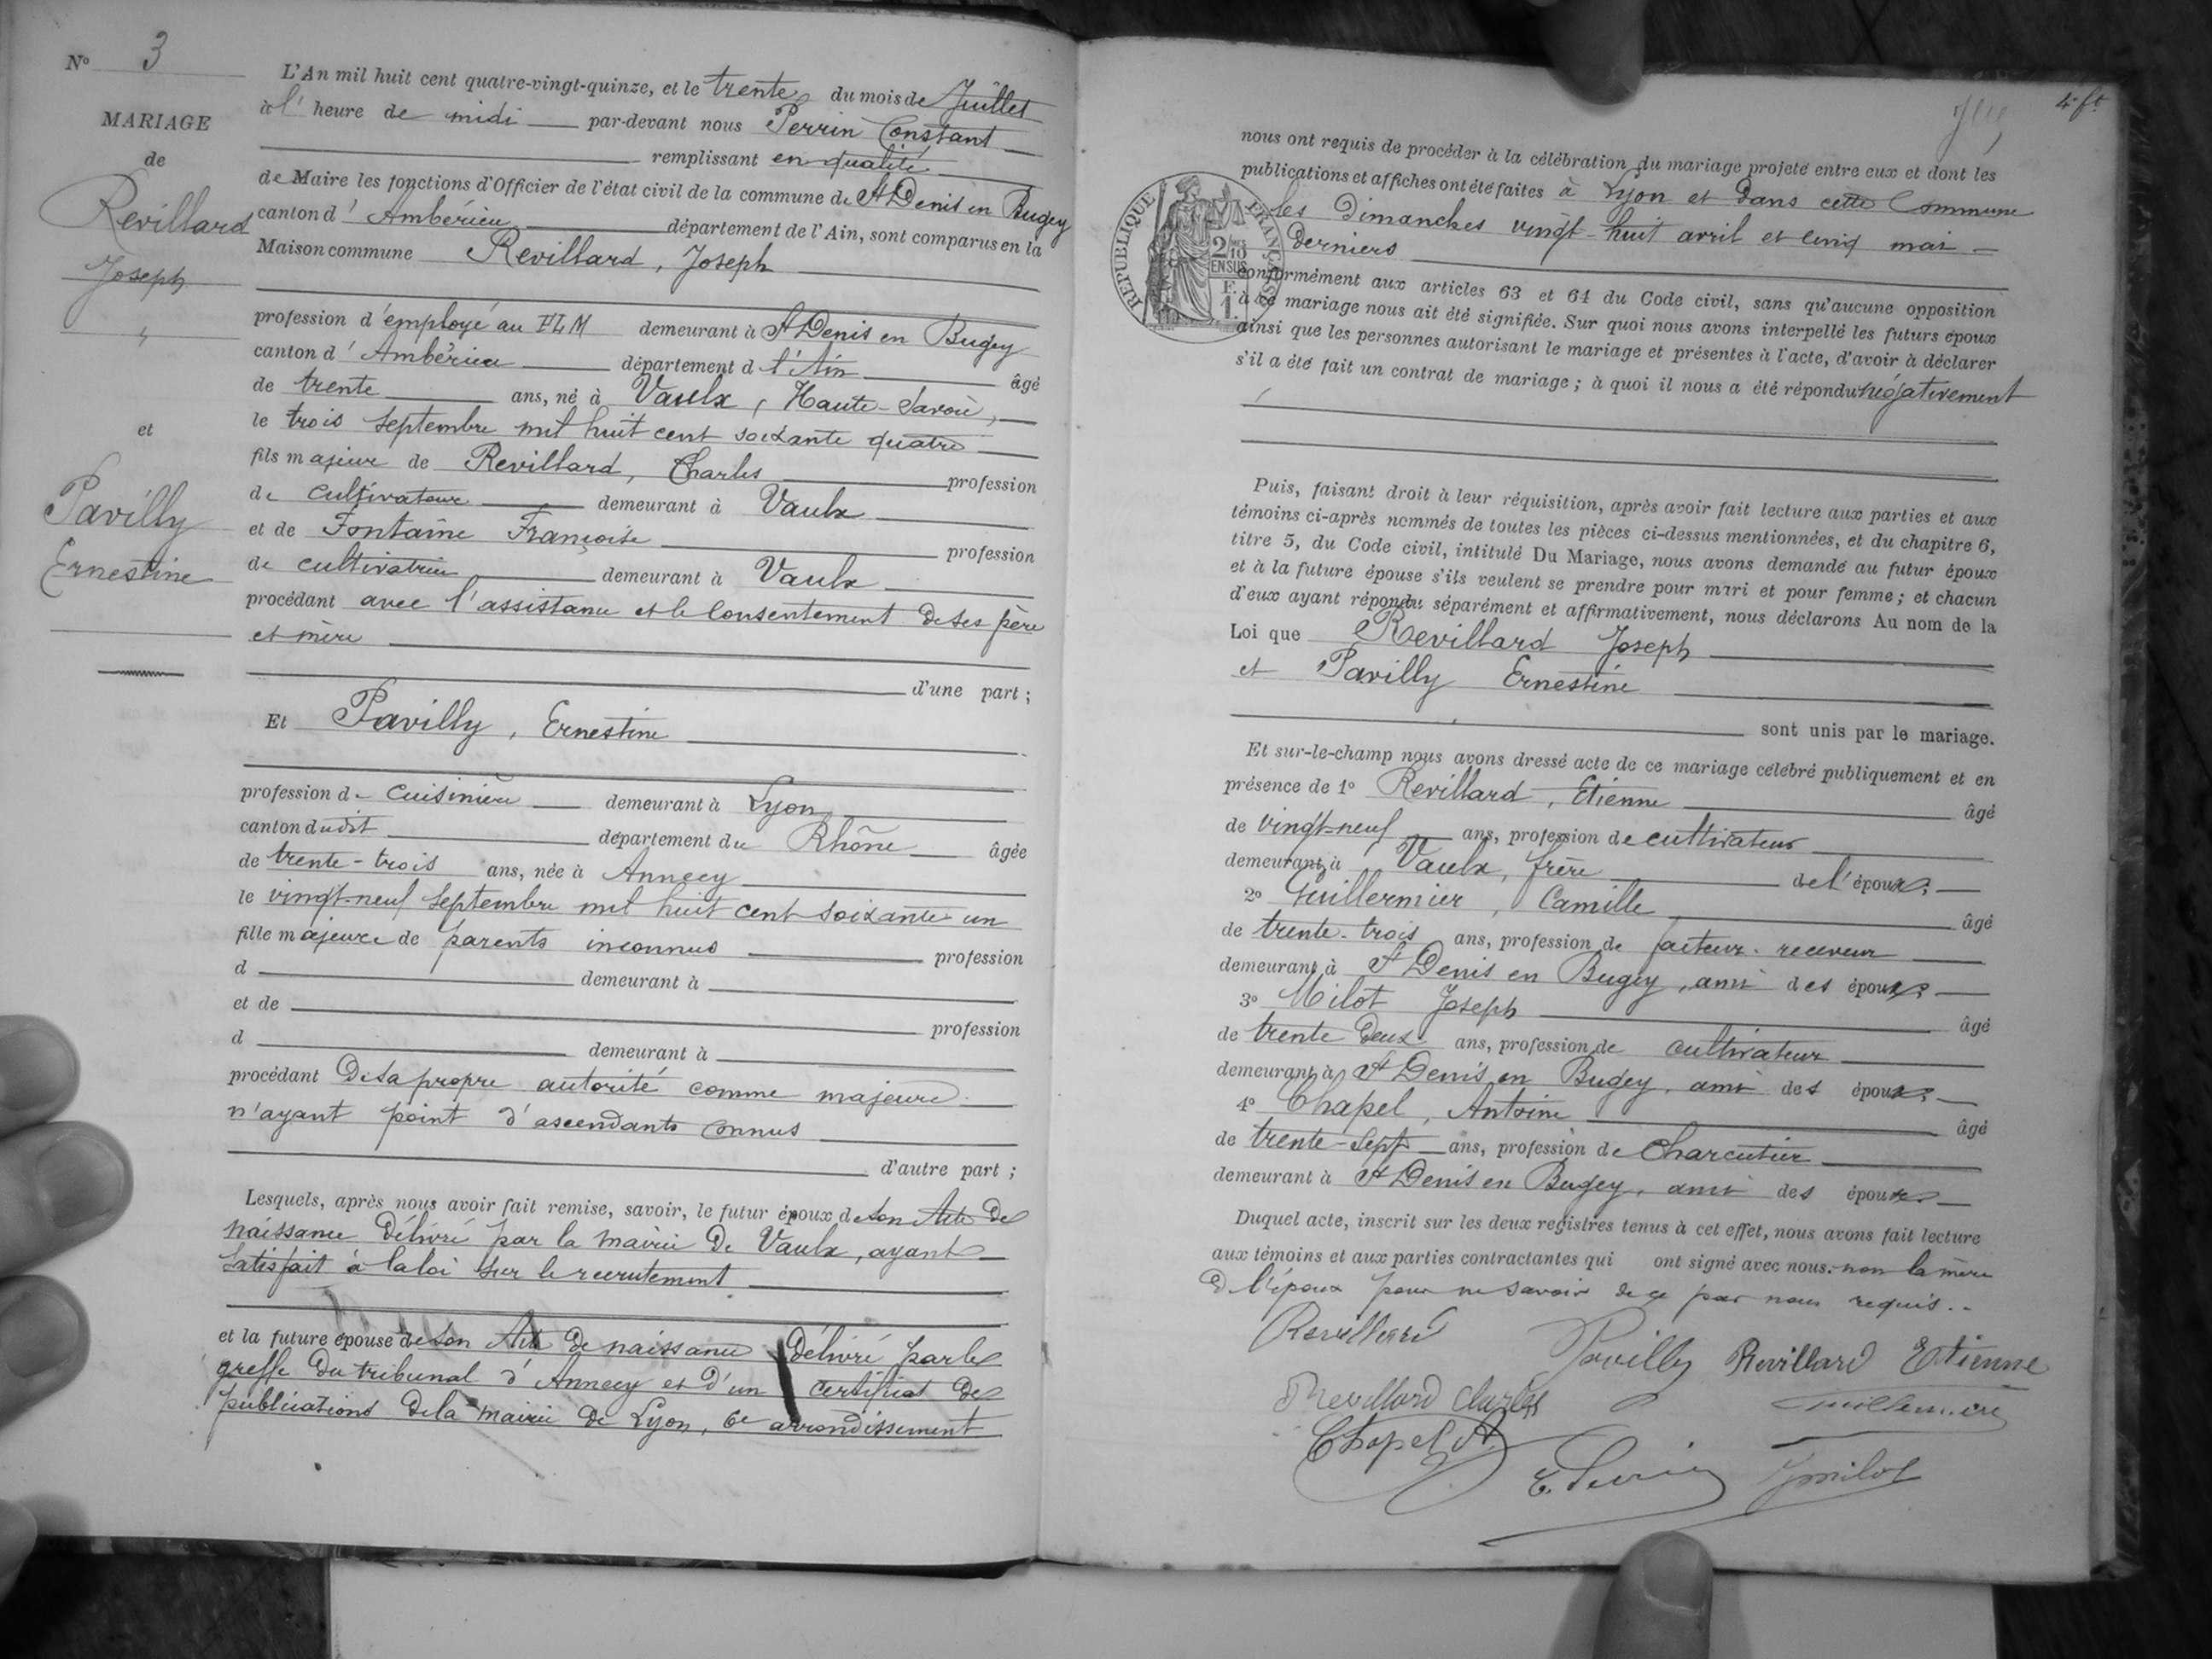 N° 3
MARIAGE
de
Revillard
Joseph
et
Pavilly
Ernestine
L'An mil huit cent quatre-vingt-quinze, et le trente du mois de Juillet
à l'heure de midi par-devant nous Perrin Constant
remplissant en qualité
de Maire les fonctions d'Officier de l'état civil de la commune de St Denis en Bugey
canton d'Ambérieu département de l'Ain, sont comparus en la
Maison commune Revillard, Joseph
profession d'employé au PLM demeurant à St Denis en Bugey
canton d'Ambérieu département d l'Ain âgé
de trente ans, né à Vaulx, Haute-Savoie,
le trois septembre mil huit cent soixante quatre
fils majeur de Revillard, Charles profession
de cultivateur demeurant à Vaulx
et de Fontaine Françoise profession
de cultivatrice demeurant à Vaulx
procédant avec l'assistance et le consentement de ses père
et mère
d'une part ;
Et Pavilly, Ernestine
profession de cuisinière demeurant à Lyon
canton dudit département du Rhône âgée
de trente-trois ans, née à Annecy
le vingt-neuf septembre mil huit cent soixante un
fille majeure de parents inconnus profession
d demeurant à
et de profession
d demeurant à
procédant de sa propre autorité comme majeure
n'ayant point d'ascendants connus
d'autre part ;
Lesquels, après nous avoir fait remise, savoir, le futur époux de son Acte de
naissance délivré par la mairie de Vaulx, ayant
satisfait à la loi sur le recrutement
et la future épouse de son Acte de naissance délivré par le
greffe du tribunal d'Annecy et d'un certificat de
publications de la mairie de Lyon, 6e arrondissement
4e ft
nous ont requis de procéder à la célébration du mariage projeté entre eux et dont les
publications et affiches ont été faites à Lyon et dans cette Commune
les Dimanches vingt-huit avril et cinq mai
derniers
RÉPUBLIQUE FRANÇAISE
2/10 EN SUS
F. 1.
conformément aux articles 63 et 64 du Code civil, sans qu'aucune opposition
à ce mariage nous ait été signifiée. Sur quoi nous avons interpellé les futurs époux
ainsi que les personnes autorisant le mariage et présentes à l'acte, d'avoir à déclarer
s'il a été fait un contrat de mariage ; à quoi il nous a été répondu négativement
Puis, faisant droit à leur réquisition, après avoir fait lecture aux parties et aux
témoins ci-après nommés de toutes les pièces ci-dessus mentionnées, et du chapitre 6,
titre 5, du Code civil, intitulé Du Mariage, nous avons demandé au futur époux
et à la future épouse s'ils veulent se prendre pour mari et pour femme ; et chacun
d'eux ayant répondu séparément et affirmativement, nous déclarons Au nom de la
Loi que Revillard Joseph
et Pavilly Ernestine
sont unis par le mariage.
Et sur-le-champ nous avons dressé acte de ce mariage célébré publiquement et en
présence de 1° Revillard, Etienne âgé
de vingt-neuf ans, profession de cultivateur
demeurant à Vaulx, frère de l'époux ;
2° Guillermier, Camille âgé
de trente-trois ans, profession de facteur-receveur
demeurant à St Denis en Bugey, ami des époux ;
3° Milot Joseph âgé
de trente deux ans, profession de cultivateur
demeurant à St Denis en Bugey, ami des époux ;
4° Chapel, Antoine âgé
de trente-sept ans, profession de charcutier
demeurant à St Denis en Bugey, ami des époux
Duquel acte, inscrit sur les deux registres tenus à cet effet, nous avons fait lecture
aux témoins et aux parties contractantes qui ont signé avec nous. non la mère
de l'époux pour ne savoir de ce par nous requis..
Revillard Pavilly Revillard Etienne
Revillard Charles Guillermier
Chapel A
C. Perrin J Milot